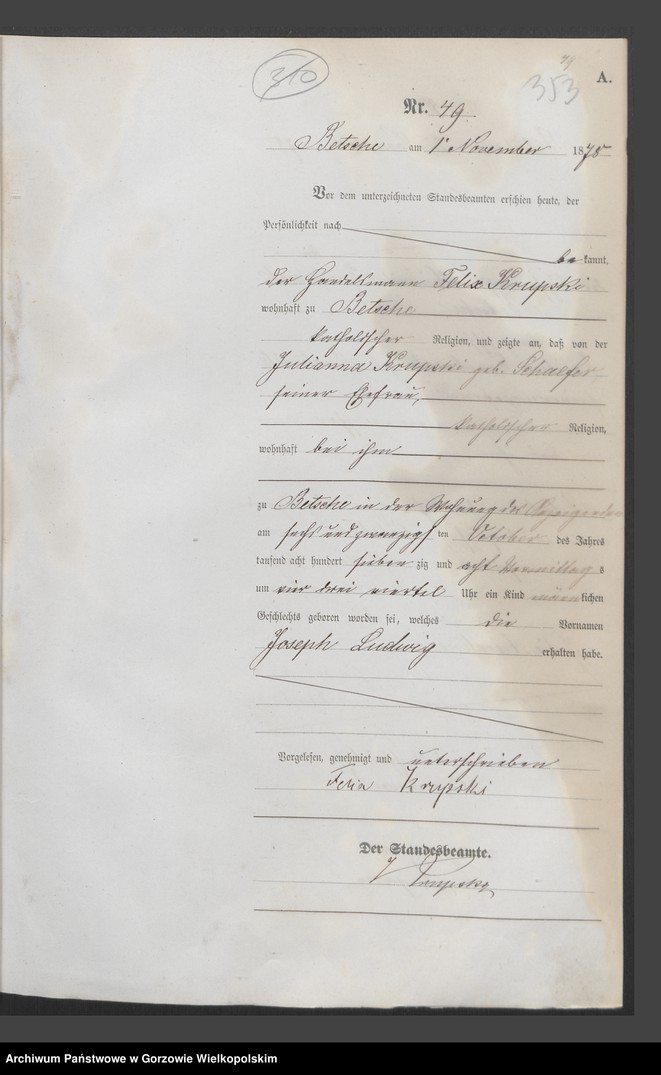 310
49
353
A.
Nr. 49.
Betsche am 1t November 1878
Vor dem unterzeichneten Standesbeamten erschien heute, der
Persönlichkeit nach
be kannt,
der Handelsmann Felix Krupski
wohnhaft zu Betsche
katholischer Religion, und zeigte an, daß von der
Julianna Krupski geb. Schaefer
seiner Ehefrau,
katholischer Religion,
wohnhaft bei ihm
zu Betsche in der Wohnung des Anzeigenden
am sechs und zwanzigs ten October des Jahres
tausend acht hundert sieben zig und acht Vormittag s
um vier drei viertel Uhr ein Kind männ lichen
Geschlechts geboren worden sei, welches die Vornamen
Joseph Ludwig erhalten habe.
Vorgelesen, genehmigt und unterschrieben
Krupski
Der Standesbeamte.
Archiwum Państwowe w Gorzowie Wielkopolskim